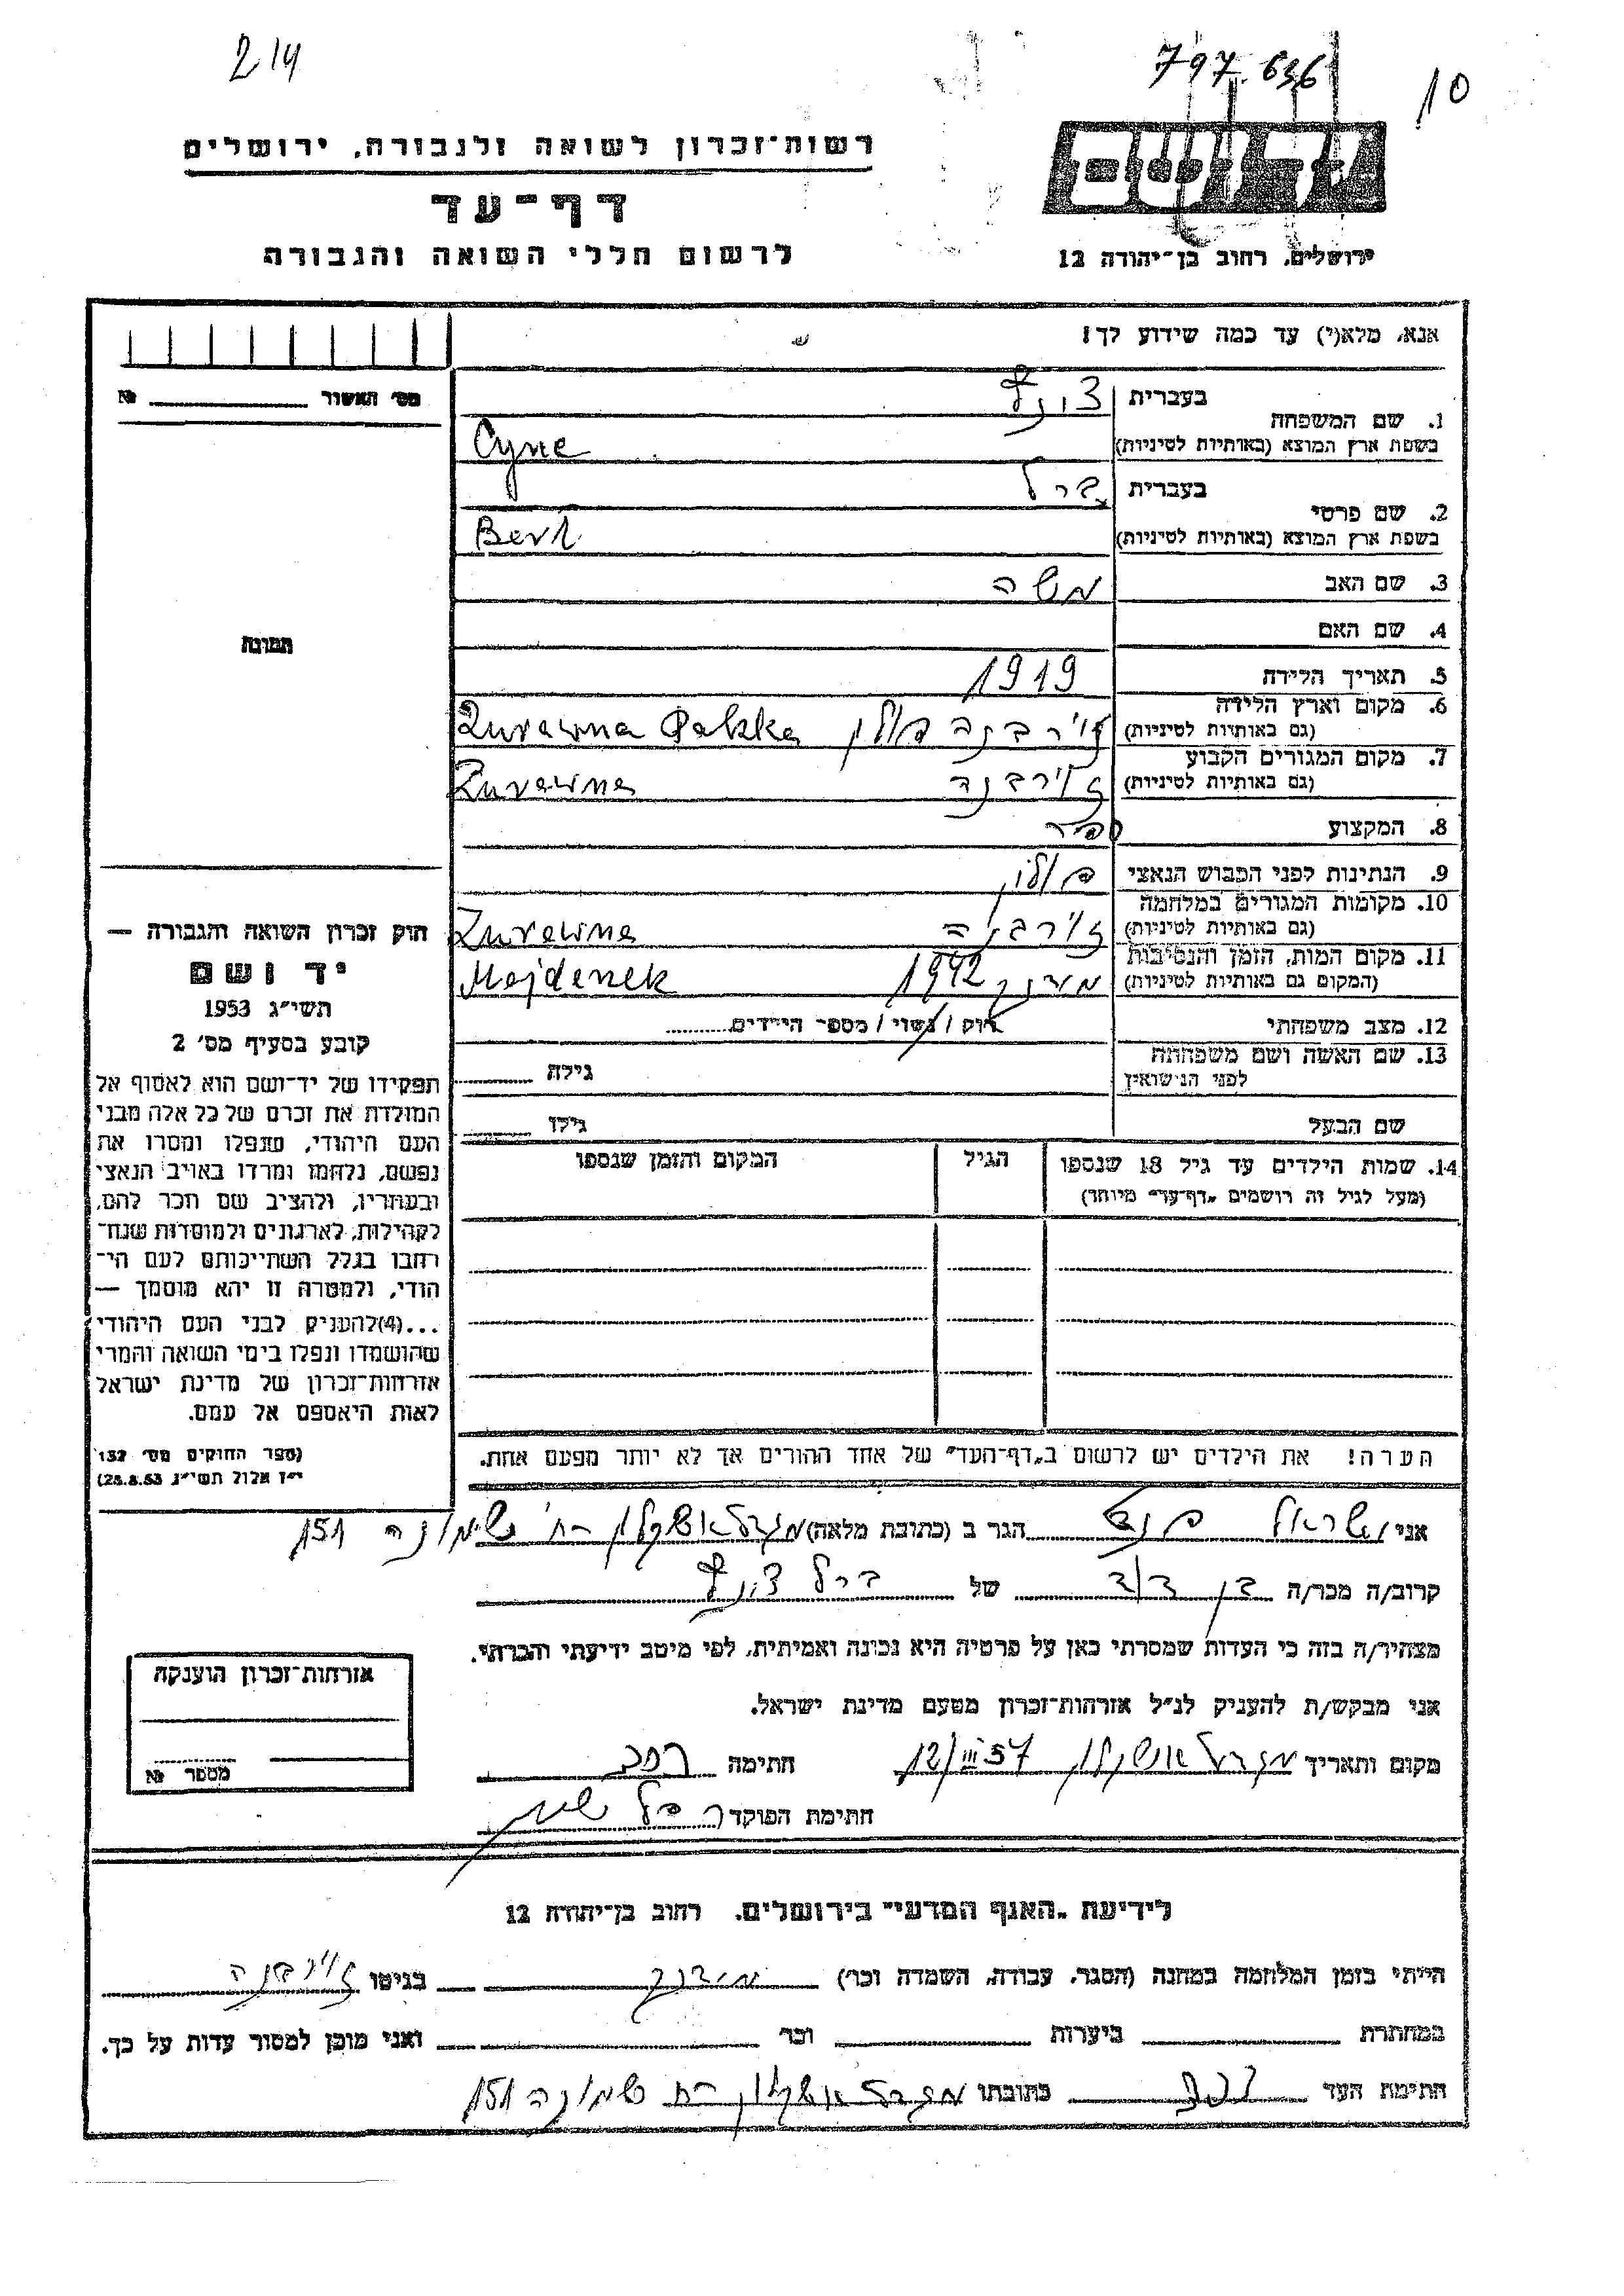 214
797.636
10
רשות־זכרון לשואה ולגבורה, ירושלים
דף־עד
לרשום חללי השואה והגבורה
ידושם
ירושלים, רחוב בן־יהודה 12
אנא, מלא(י) עד כמה שידוע לך!
מס׳ האשור № 
1. שם המשפחה
בעברית
בשפת ארץ המוצא (באותיות לטיניות) Cyne
2. שם פרטי
בעברית ברל
בשפת ארץ המוצא (באותיות לטיניות) Berl
3. שם האב משה
4. שם האם
5. תאריך הלידה 1919
6. מקום וארץ הלידה
(גם באותיות לטיניות) פולין Zurawna Polska
7. מקום המגורים הקבוע
(גם באותיות לטיניות) Zurawna
8. המקצוע ספר
9. הנתינות לפני הכבוש הנאצי פולין
10. מקומות המגורים במלחמה
(גם באותיות לטיניות) Zurawna
11. מקום המות, הזמן והנסיבות
(המקום גם באותיות לטיניות) 1942 Majdenek
12. מצב משפחתי רוק / נשוי / מספר הילדים
13. שם האשה ושם משפחתה
לפני הנישואין גילה
שם הבעל גילו
14. שמות הילדים עד גיל 18 שנספו הגיל המקום והזמן שנספו
(מעל לגיל זה רושמים „דף־עד״ מיוחד)
הערה! את הילדים יש לרשום ב„דף־העד״ של אחד ההורים אך לא יותר מפעם אחת.
תמונה
חוק זכרון השואה והגבורה —
יד ושם
תשי״ג 1953
קובע בסעיף מס׳ 2
תפקידו של יד־ושם הוא לאסוף אל
המולדת את זכרם של כל אלה מבני
העם היהודי, שנפלו ומסרו את
נפשם, נלחמו ומרדו באויב הנאצי
ובעוזריו, ולהציב שם וזכר להם,
לקהילות, לארגונים ולמוסדות שנח־
רבו בגלל השתייכותם לעם הי־
הודי, ולמטרה זו יהא מוסמך —
...(4)להעניק לבני העם היהודי
שהושמדו ונפלו בימי השואה והמרי
אזרחות־זכרון של מדינת ישראל
לאות היאספם אל עמם.
(ספר החוקים מס׳ 132
י״ז אלול תשי״ג 28.8.53)
אני ישראל הגר ב (כתובת מלאה) מגדל אשקלון רח׳ שמונה 151
קרוב/ה מכר/ה בן דוד של ברל
מצהיר/ה בזה כי העדות שמסרתי כאן על פרטיה היא נכונה ואמיתית, לפי מיטב ידיעתי והכרתי.
אני מבקש/ת להעניק לנ״ל אזרחות־זכרון מטעם מדינת ישראל.
מקום ותאריך מגדל אשקלון 12/III 57 חתימה
חתימת הפוקד
אזרחות־זכרון הוענקה
מספר №
לידיעת „האגף המדעי״ בירושלים. רחוב בן־יהודה 12
הייתי בזמן המלחמה במחנה (הסגר, עבודה, השמדה וכו׳) מידנק בגיטו
במחתרת ביערות וכו׳ ואני מוכן למסור עדות על כך.
חתימת העד כתובתו מגדל אשקלון רח שמונה 151